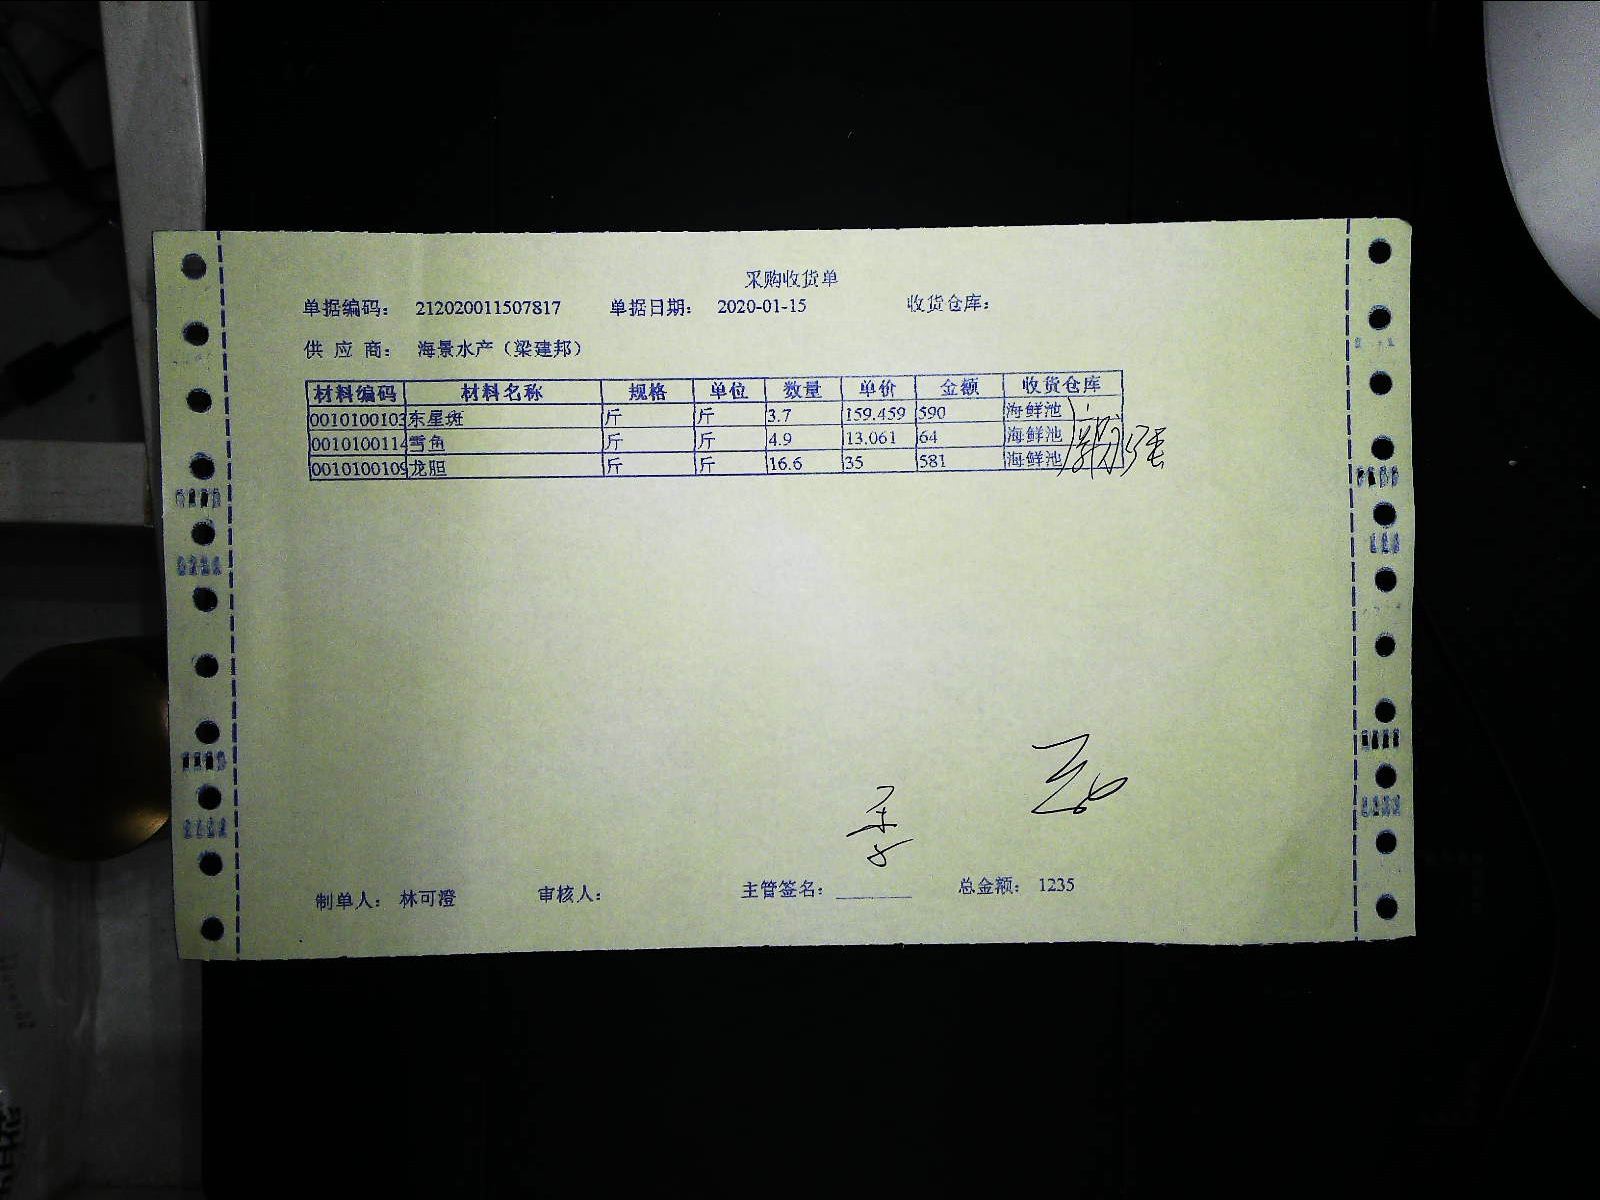 采购收货单
单据编码： 212020011507817 单据日期： 2020-01-15 收货仓库：
供 应 商： 海景水产（梁建邦）
材料编码 材料名称 规格 单位 数量 单价 金额 收货仓库
0010100103 东星斑 斤 斤 3.7 159.459 590 海鲜池
0010100114 雪鱼 斤 斤 4.9 13.061 64 海鲜池
0010100109 龙胆 斤 斤 16.6 35 581 海鲜池
制单人： 林可澄 审核人： 主管签名： 总金额： 1235